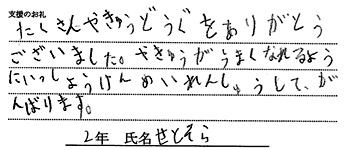 支援のお礼
たくさんやきゅうどうぐをありがとう
ございました。やきゅうがうまくなれるよう
にいっしょうけんめいれんしゅうして、が
んばります。
2年 氏名せとそら